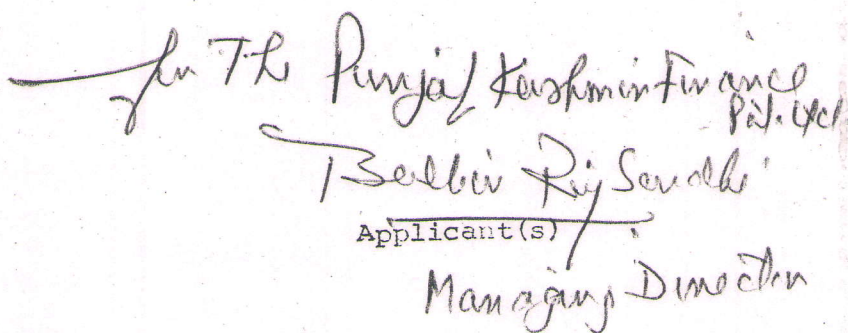 for The Punjab Kashmir Finance
Pvt. Ltd
Balbir Raj Sondhi
Applicant(s)
Managing Director